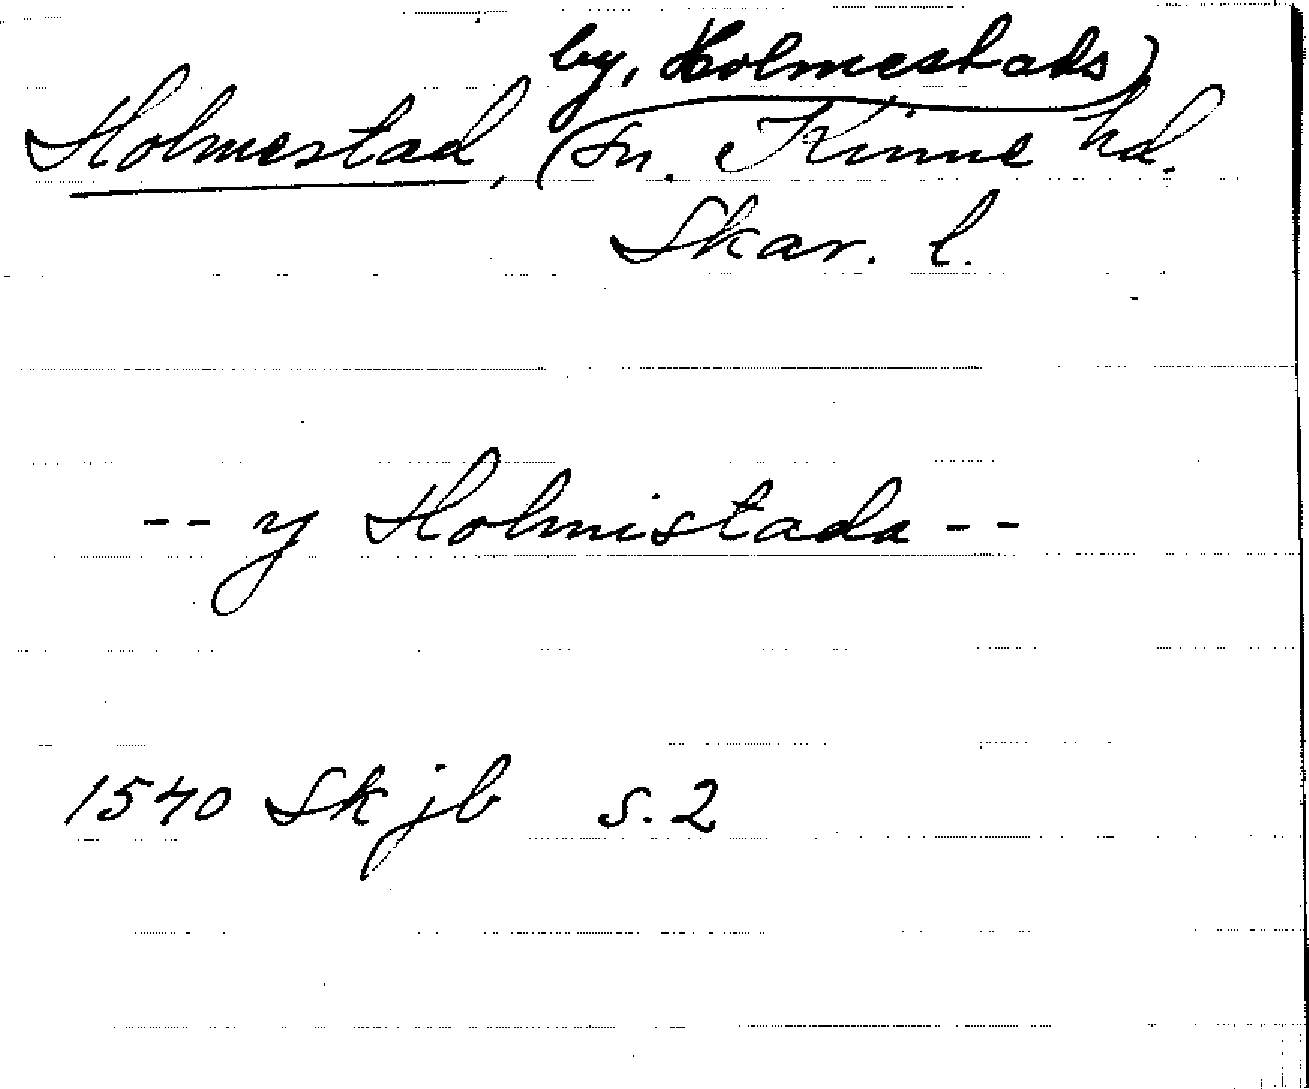 by, Holmestads
Holmestad, sn. Kinne hd.
Skar. l.
-- y Holmistada --
1540 Skjb s. 2